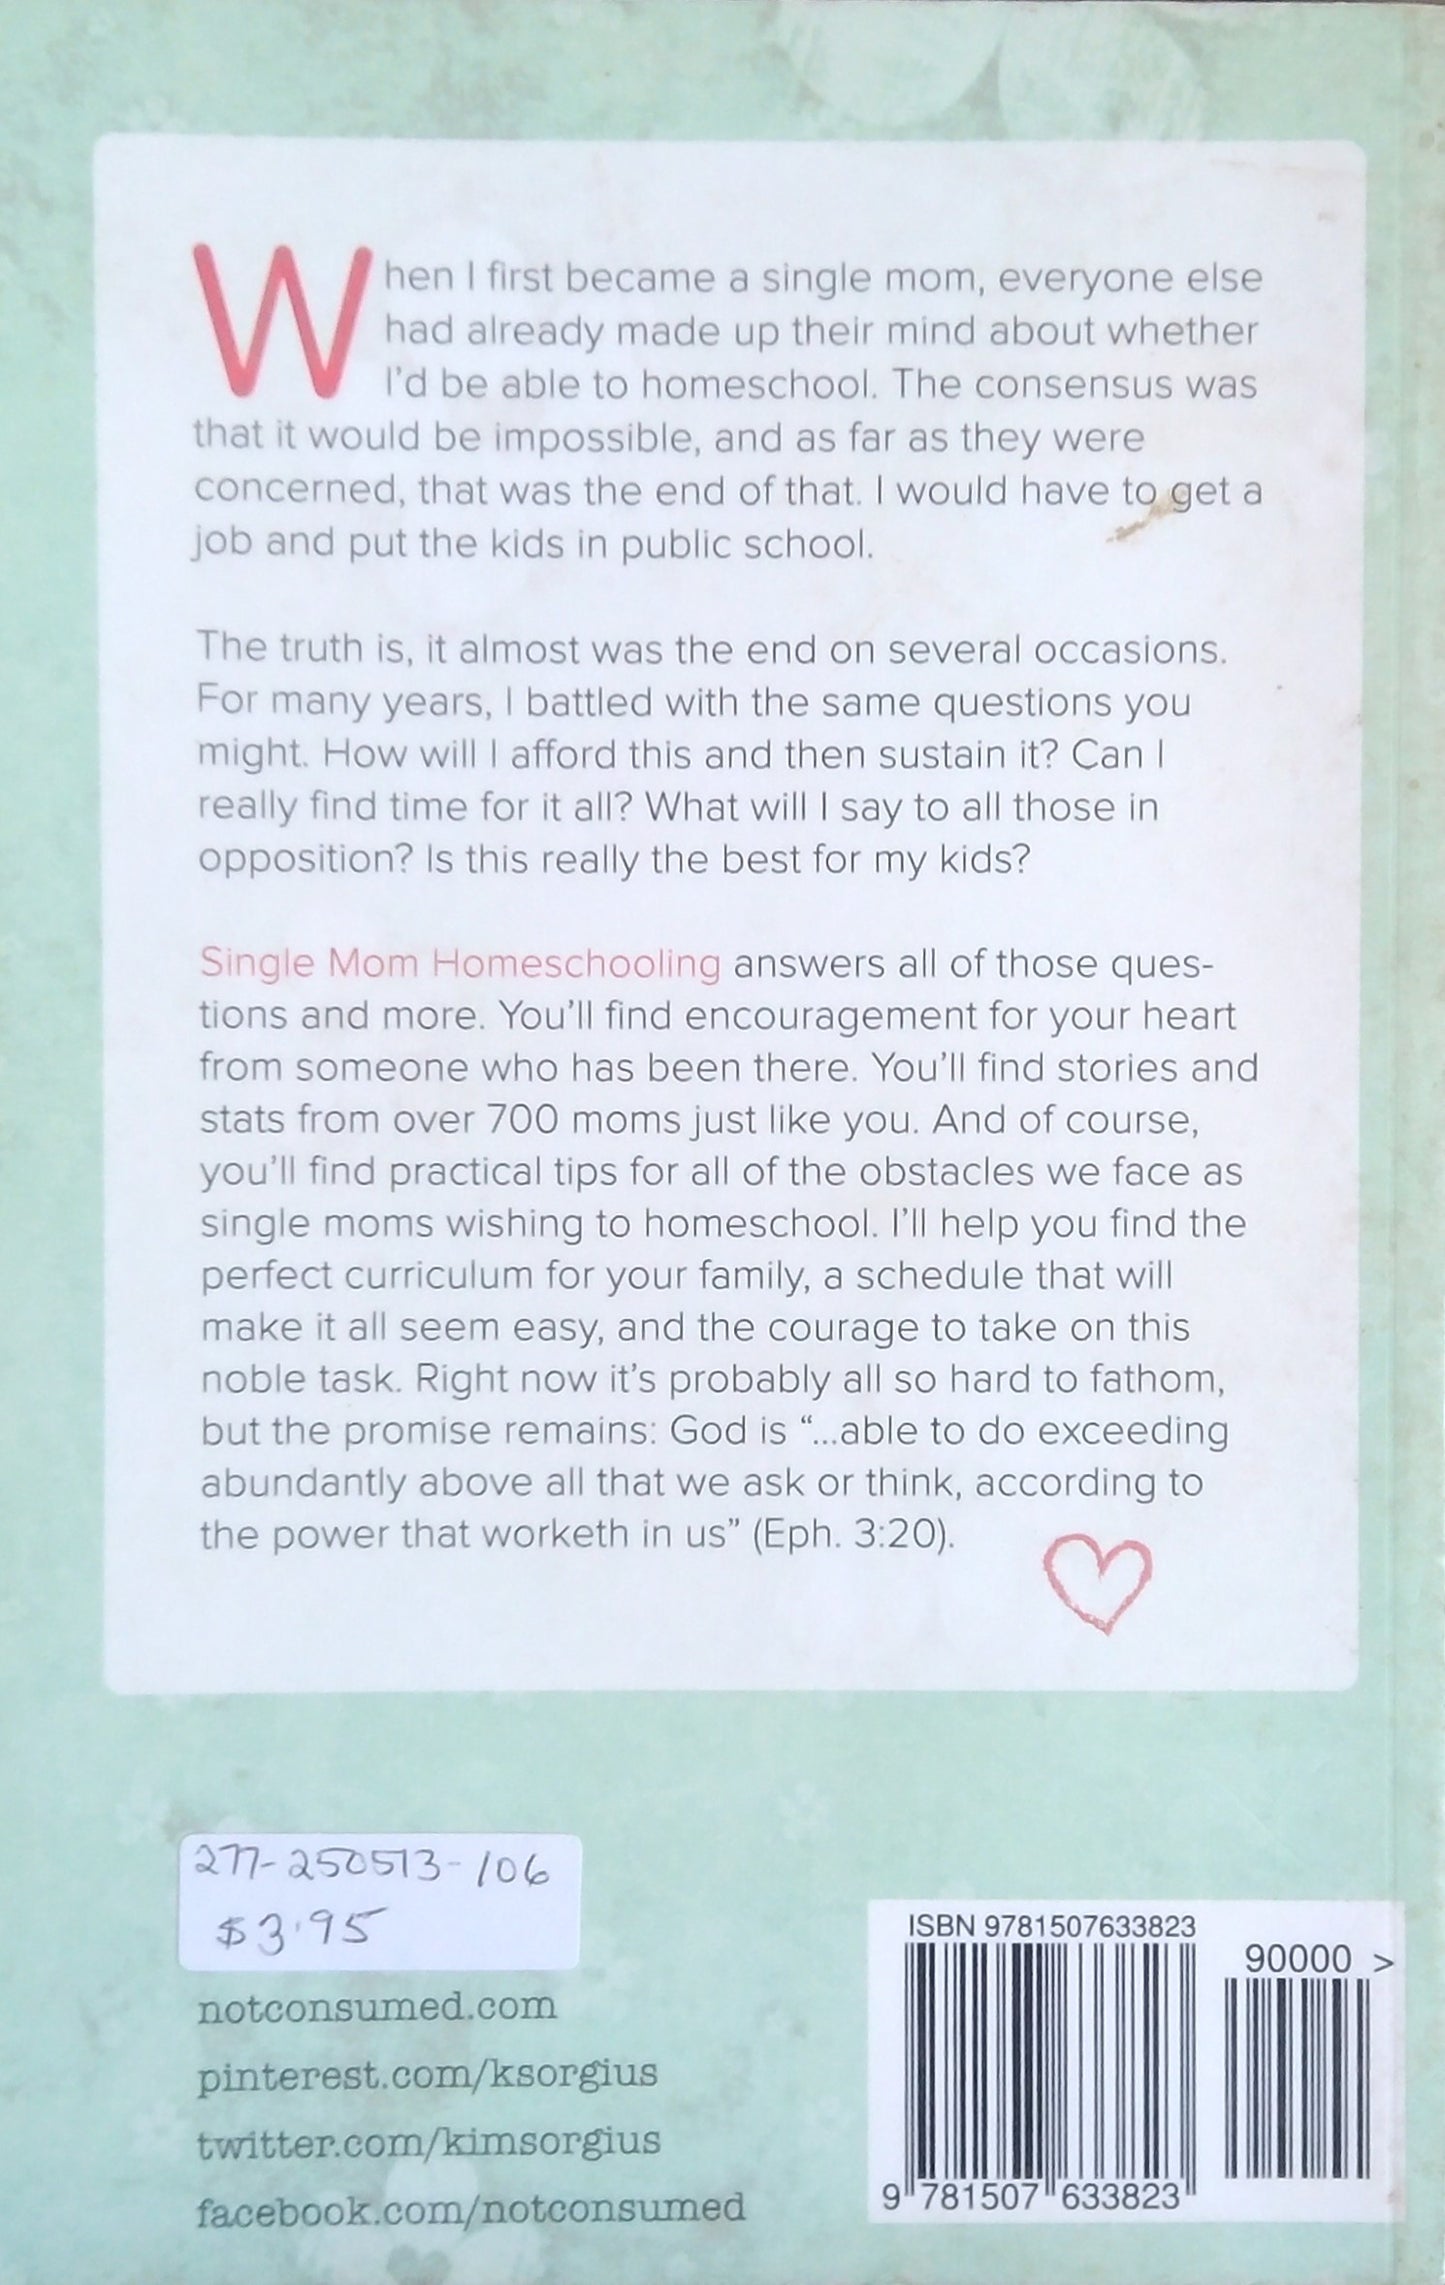 When I first became a single mom, everyone else
had already made up their mind about whether
I'd be able to homeschool. The consensus was
that it would be impossible, and as far as they were
concerned, that was the end of that. I would have to get a
job and put the kids in public school.
The truth is, it almost was the end on several occasions.
For many years, I battled with the same questions you
might. How will I afford this and then sustain it? Can I
really find time for it all? What will I say to all those in
opposition? Is this really the best for my kids?
Single Mom Homeschooling answers all of those ques-
tions and more. You'll find encouragement for your heart
from someone who has been there. You'll find stories and
stats from over 700 moms just like you. And of course,
you'll find practical tips for all of the obstacles we face as
single moms wishing to homeschool. I'll help you find the
perfect curriculum for your family, a schedule that will
make it all seem easy, and the courage to take on this
noble task. Right now it's probably all so hard to fathom,
but the promise remains: God is “...able to do exceeding
abundantly above all that we ask or think, according to
the power that worketh in us” (Eph. 3:20).
277-250513-106
$3.95
notconsumed.com
pinterest.com/ksorgius
twitter.com/kimsorgius
facebook.com/notconsumed
ISBN 9781507633823
90000 >
9 781507 633823